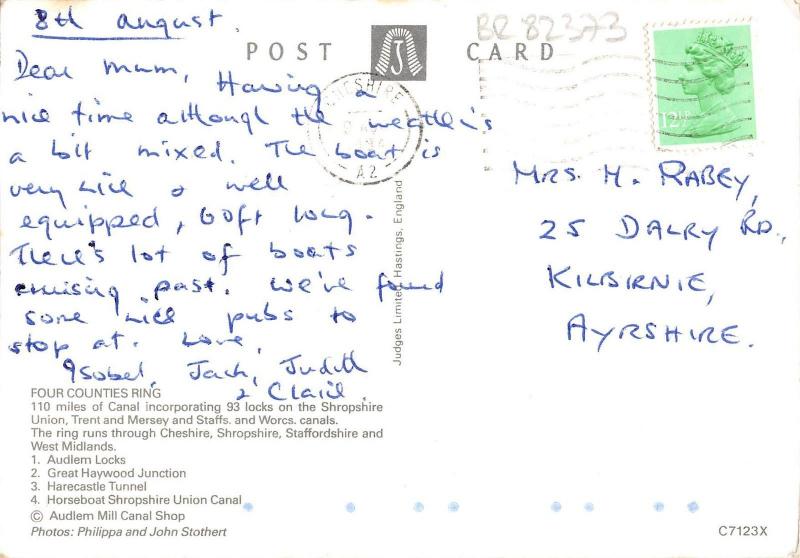 8th august.
POST CARD
BR 82373
Dear Mum, Having a
nice time although the weather's
a bit mixed. The boat is
very nice & well
equipped, 60ft long.
There's lot of boats
cruising past. We've found
some nice pubs to
stop at. Love,
Isobel, Jack, Judith
& Claire.
SHIRE
A2
12½
MRS. M. RABEY,
25 DALRY RD.,
KILBIRNIE,
AYRSHIRE.
Judges Limited, Hastings, England
FOUR COUNTIES RING
110 miles of Canal incorporating 93 locks on the Shropshire
Union, Trent and Mersey and Staffs. and Worcs. canals.
The ring runs through Cheshire, Shropshire, Staffordshire and
West Midlands.
1. Audlem Locks
2. Great Haywood Junction
3. Harecastle Tunnel
4. Horseboat Shropshire Union Canal
© Audlem Mill Canal Shop
Photos: Philippa and John Stothert
C7123X